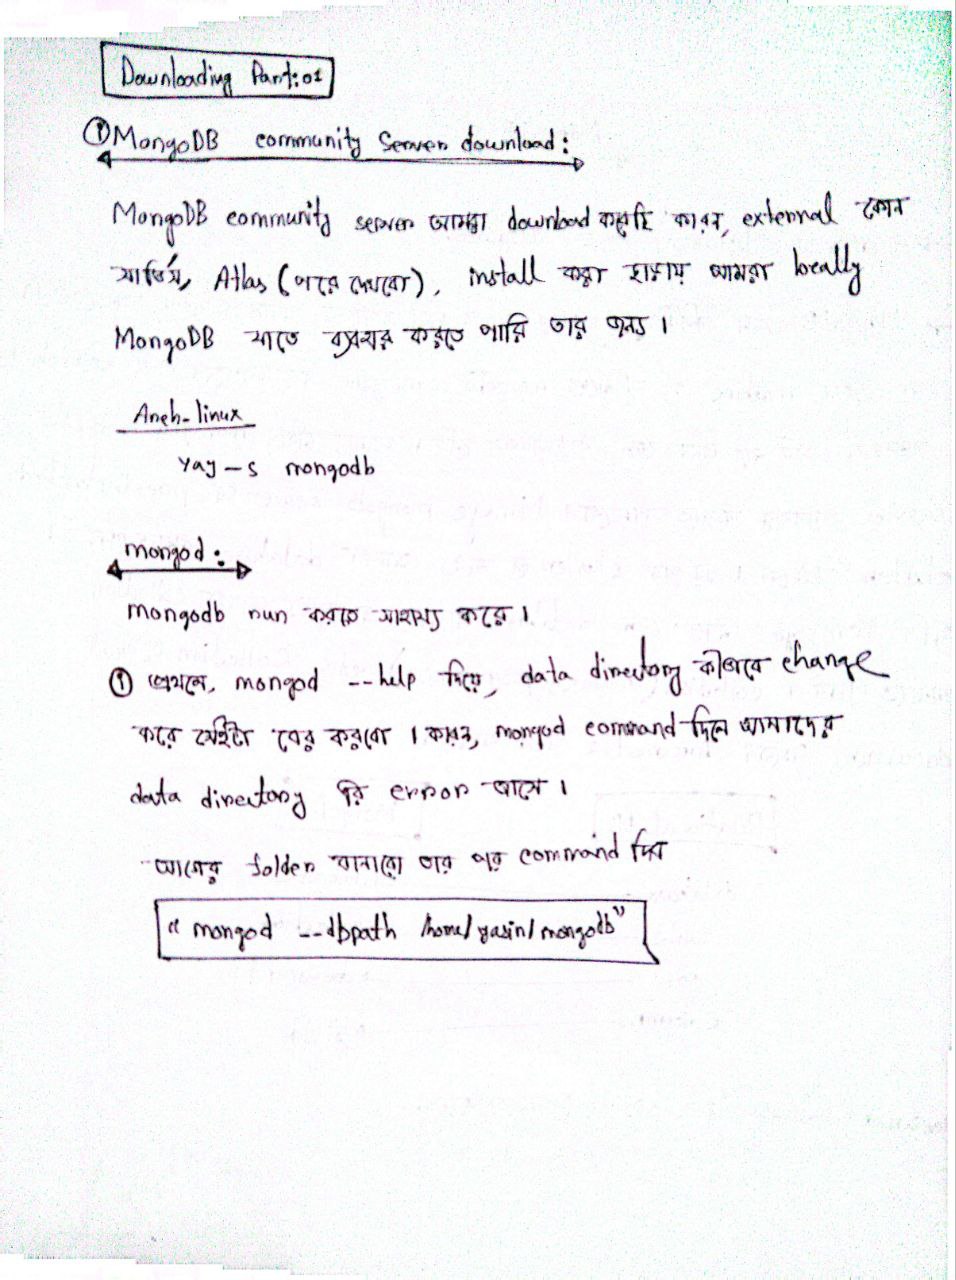 Downloading Part:01
① MongoDB community Server download:
MongoDB community server আমরা download করেছি কারন, external কোন
সার্ভিস, Atlas (পরে দেখবো), install করা ছাড়ায় আমরা locally
MongoDB যাতে ব্যবহার করতে পারি তার জন্য।
Arch-linux
yay -s mongodb
mongod:
mongodb run করতে সাহায্য করে।
① প্রথমে, mongod --help দিয়ে, data directory কীভাবে change
করে সেইটা বের করবো। কারন, mongod command দিলে আমাদের
data directory রি error আসে।
আগের folder বানাবো তার পর command দিব
“mongod --dbpath /home/yasin/mongodb”